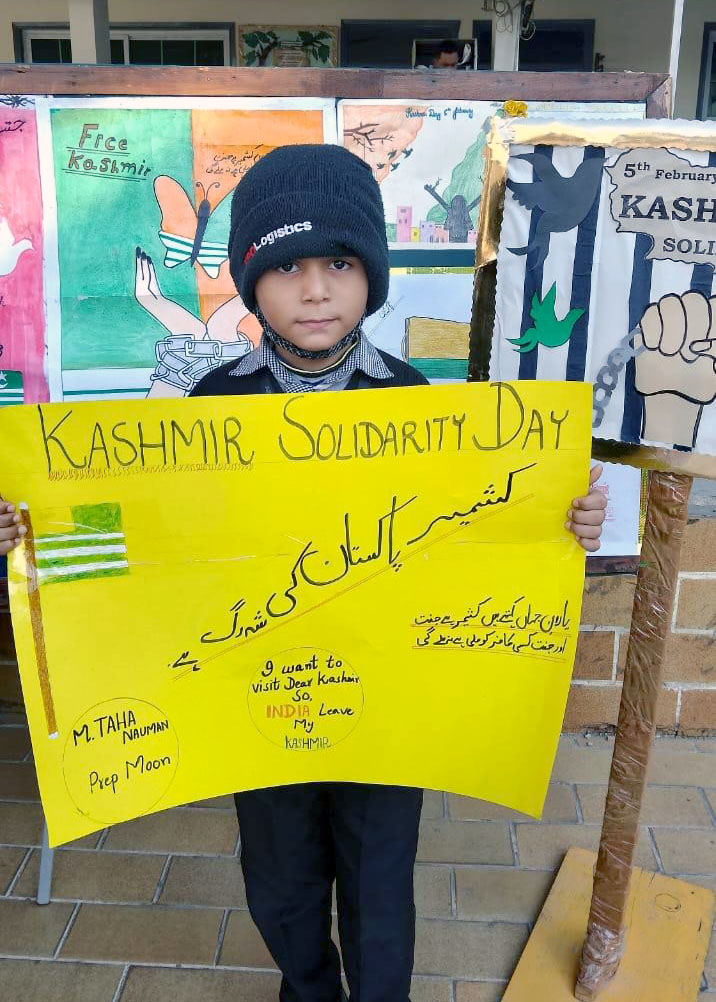 Free
Kashmir
Kashmir Day 5th february
5th February
KASH
SOLI
Logistics
KASHMIR SOLIDARITY DAY
کشمیر پاکستان کی شہ رگ ہے۔
یاران جہاں کہتے ہیں کشمیر ہے جنت
اور جنت کسی کافر کو ملی ہے نہ ملے گی
I want to
visit Dear Kashmir
So,
INDIA Leave
My
KASHMIR
M. TAHA
NAUMAN
Prep Moon